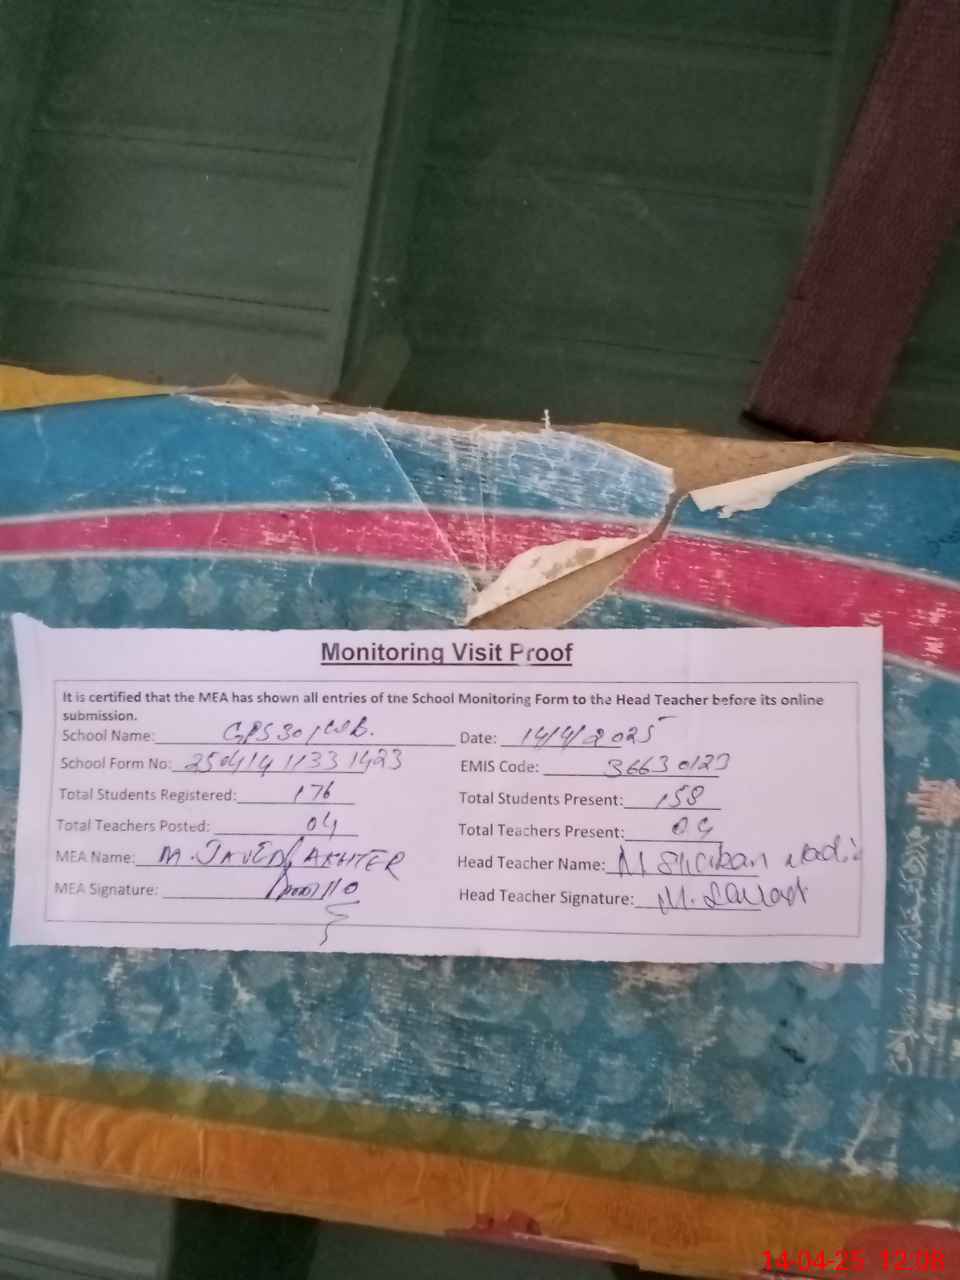 Monitoring Visit Proof
It is certified that the MEA has shown all entries of the School Monitoring Form to the Head Teacher before its online
submission.
School Name: GPS 30/WB. Date: 14/4/2025
School Form No: 25041411331423 EMIS Code: 36630123
Total Students Registered: 176 Total Students Present: 158
Total Teachers Posted: 04 Total Teachers Present: 04
MEA Name: M. JAVED AKHTER Head Teacher Name: M
MEA Signature: Head Teacher Signature: M.
14-04-25 12:08